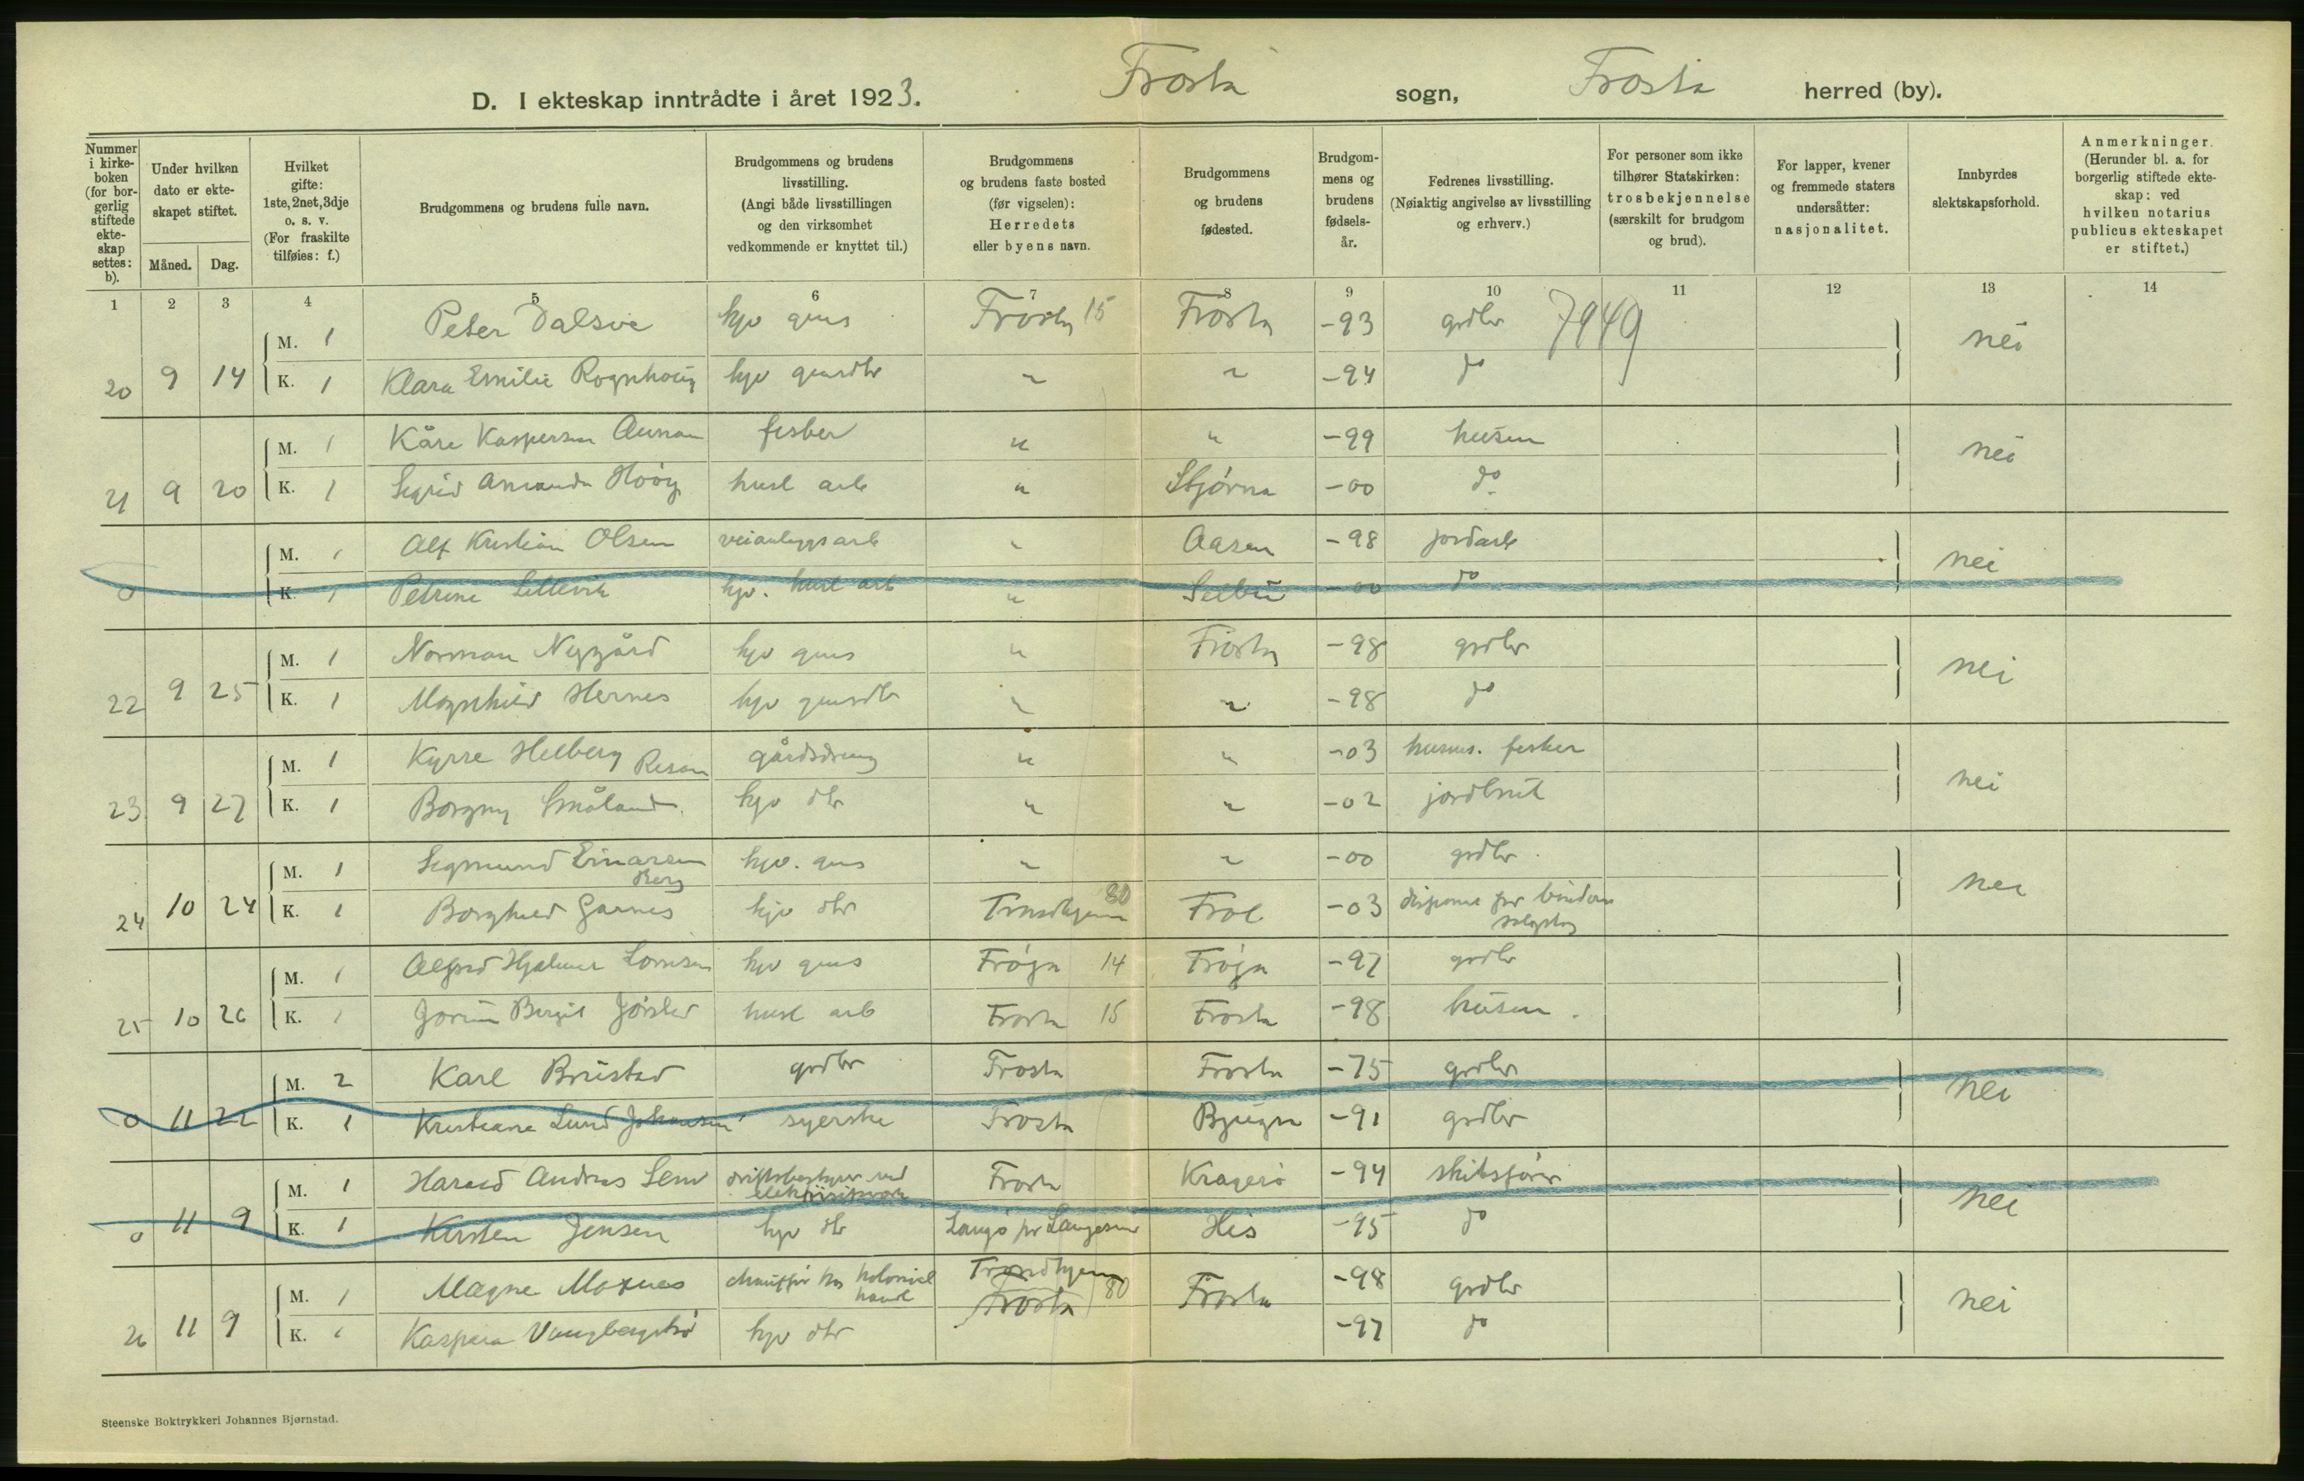 D. I ekteskap inntrådte i året 1923. Frosta sogn, Frosta herred (by).
Nummer i kirke-boken (for bor-gerlig stiftede ekte-skap settes: b).
Under hvilken dato er ekte-skapet stiftet.
Måned. Dag.
Hvilket gifte: 1ste, 2net, 3dje o. s. v. (For fraskilte tilføies: f.)
Brudgommens og brudens fulle navn.
Brudgommens og brudens livsstilling. (Angi både livsstillingen og den virksomhet vedkommende er knyttet til.)
Brudgommens og brudens faste bosted (før vigselen): Herredets eller byens navn.
Brudgommens og brudens fødested.
Brudgom-mens og brudens fødsels-år.
Fedrenes livsstilling. (Nøiaktig angivelse av livsstilling og erhverv.)
For personer som ikke tilhører Statskirken: trosbekjennelse (særskilt for brudgom og brud).
For lapper, kvener og fremmede staters undersåtter: nasjonalitet.
Innbyrdes slektskapsforhold.
Anmerkninger. (Herunder bl. a. for borgerlig stiftede ekte-skap: ved hvilken notarius publicus ekteskapet er stiftet.)
1 2 3 4 5 6 7 8 9 10 11 12 13 14
M. 1 Peter Dalsve hjv gms Frosta 15 Frosta -93 grdbr 7949 nei
20 9 14 K. 1 Klara Emilie Rognhaug hjv gmsdtr " " -94 do
M. 1 Kåre Kaspersen Aunan fisker " " -99 husm nei
21 9 20 K. 1 Sigrid Amanda Hoøy husl arb " Stjørna -00 do
M. 1 Alf Kristian Olsen veianleggsarb " Aasen -98 jordarb nei
0 K. 1 Petrine Slettevik hjv. husl arb " Selbu -00 do
M. 1 Norman Nygård hjv gms " Frosta -98 grdbr nei
22 9 25 K. 1 Magnhild Hernes hjv gmsdtr " " -98 do
M. 1 Kyrre Helberg Resan gårdsdreng " " -03 husm. fisker nei
23 9 27 K. 1 Borgny Småland hjv dtr " " -02 jordbruk
M. 1 Sigmund Einarsen Berg hjv. gms " " -00 grdbr nei
24 10 24 K. 1 Borghild Garnes hjv dtr Trondhjem 80 Frol -03 for
M. 1 Alfred Hjalmar Lornsen hjv gms Frøya 14 Frøya -97 grdbr
25 10 26 K. 1 Jorun Bergit Jørstad husl arb Frosta 15 Frosta -98 husm.
M. 2 Karl Brustad grdbr Frosta Frosta -75 grdbr nei
0 11 22 K. 1 Kristiane Lund Johansen syerske Frosta Bjugn -91 grdbr
M. 1 Harald Andreas Lem driftsbestyrer ved elektrisitsverk Frosta Kragerø -94 skibsfører nei
0 11 9 K. 1 Kirsten Jensen hjv dtr Langø pr Langesund His -95 do
M. 1 Magne Moxnes chauffør hos kolonial handl Trondhjem 80 Frosta Frosta -98 grdbr nei
26 11 9 K. 1 Kaspara Vangbergstrø hjv dtr -97 do
Steenske Boktrykkeri Johannes Bjørnstad.